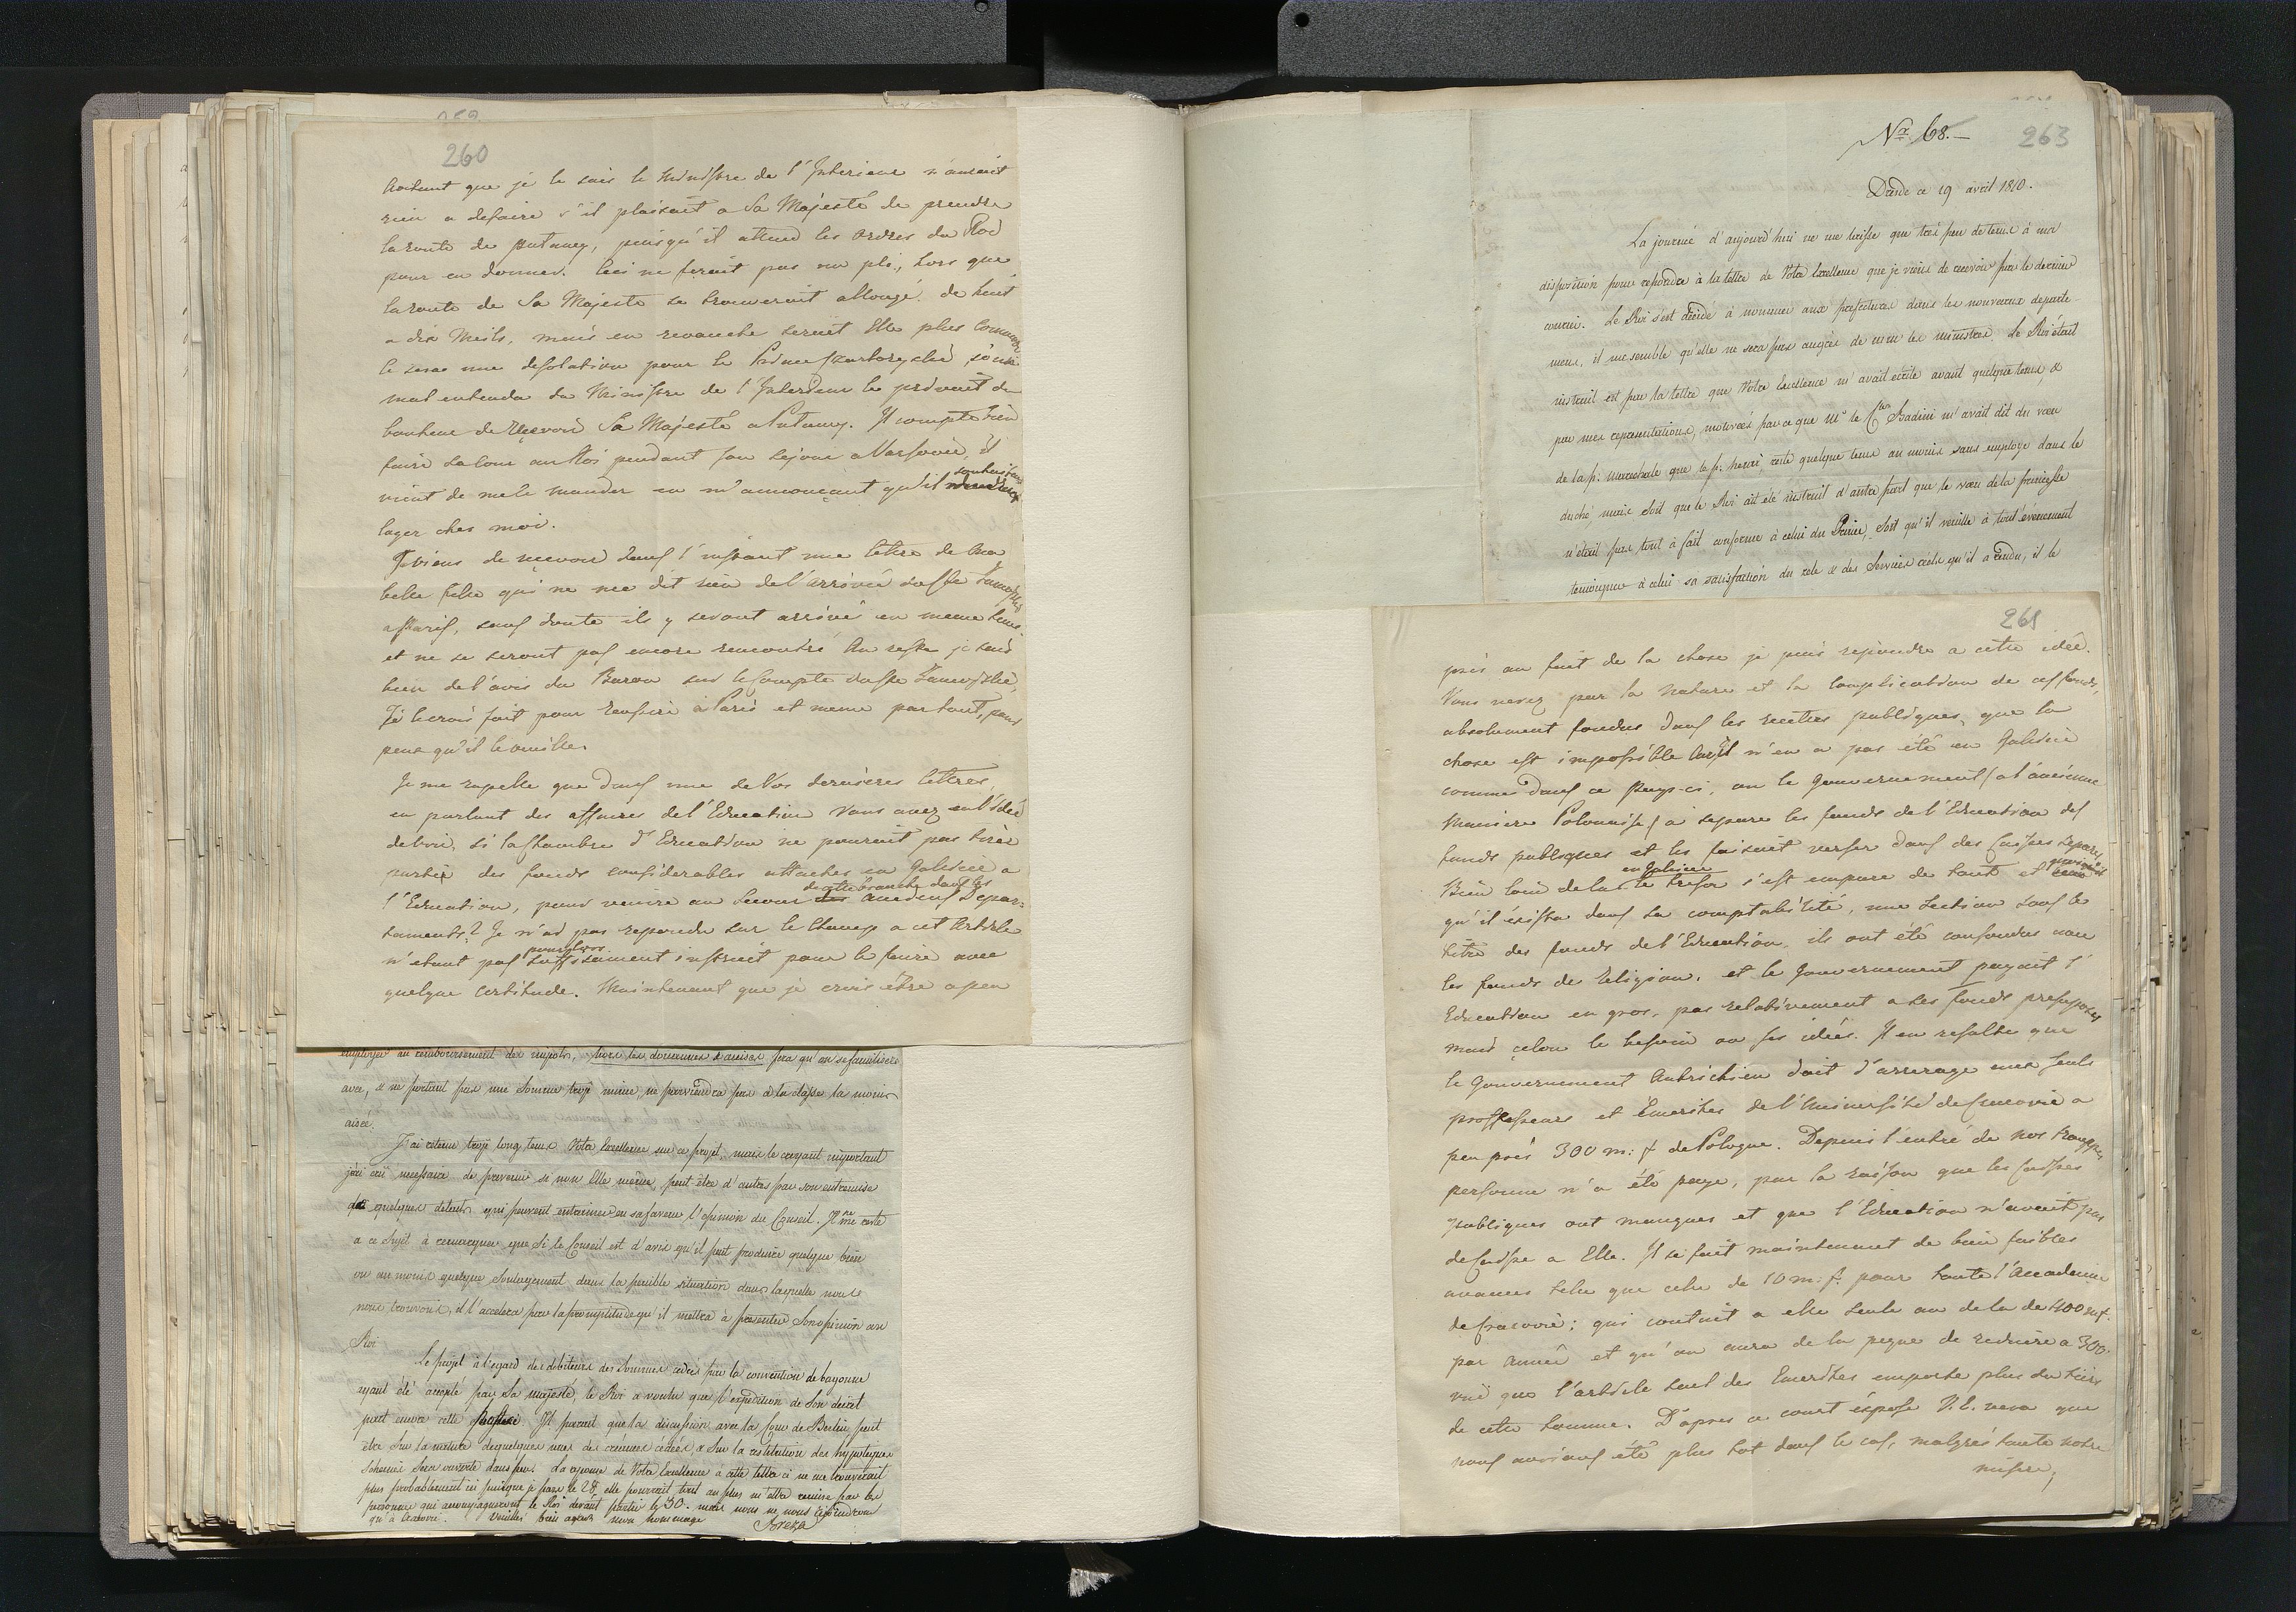 260
Autant que je le sais le Ministre de l'Interieur n'aurait
rien a defaire s'il plaisait a Sa Majesté de prendre
la route de Putawy, puisqu'il attend les ordres du Roi
pour en donner. Ceci ne ferait pas un pli, lors que
la route de Sa Majesté se trouverait allongé de huit
a dix Meils, mais en revanche serait Elle plus commode
ce sera une desolation pour le Prince Czartoryski, si un
mal entendu du Ministre de l'Interieur le privait du
bonheur de recevoir Sa Majesté a Putawy. Il compte bien
faire sa cour au Roi pendant son sejour a Varsovie, il
vient de me le mander en m'annonçant qu'il souhaitait
loger chez moi.
Je viens de recevoir dans l'instant une lettre de ma
belle fille qui ne me dit rien de l'arrivée du Cte Zamoyski
a Paris, sans doute ils y seront arrivé en meme tems
et ne se seront pas encore rencontré. Au reste je suis
bien de l'avis du Baron sur le compte du Cte Zamoyski,
Je le crois fait pour reussir à Paris et meme partout, pour
peu qu'il le veuille.
Je me rapelle que dans une de Vos dernieres lettres,
en parlant des affaires de l'Education Vous avez eu l'idée
de voir, si la Chambre d'Education ne pourait pas tirer
partie des fonds considerables attachés en Galicie a
de cette branche dans les
l'Education, pour venir au secour des anciens Depar=
tements? Je n'ai pas repondu sur le champ a cet Article
pour lors
n'etant pas suffisament instruit pour le faire avec
quelque certitude. Maintenant que je crois être a peu
employer au remboursement des impots, hors les douannes & accises fera qu'on se familisera
avec, & ne portant pas une somme trop mince, ne parviendra pas à la classe la moins
aisée.
J'ai retenu trop long tems Votre Excellence sur ce projet, mais le croyant important
j'ai crû necessaire de prevenir si non Elle même, peut être d'autres par son entremise
de quelques details qui peuvent entrainer en sa faveur l'opinion du Conseil. Il me reste
a ce sujet à remarquer que si le Conseil est d'avis qu'il peut produire quelque bien
ou au moins quelque soulagement dans la penible situation dans laquelle nous
nous trouvons, il l'accelera par la promptitude qu'il mettra à presenter son opinion au
Roi
Le projet à l'egard des debiteurs des sommes cedées par la convention de bayonne
ayant été accepté par Sa majesté, le Roi a voulu que l'expedition de Son decret
part encore cette. Il parait que la discussion avec la Cour de Berlin peut
être sur la nature de quelques unes des créances cédées & sur la restitution des hypoteques
sera ouverte dans peu. La reponse de Votre Excellence à cette lettre ci ne me trouverait
plus probablement ici puisque je pars le 28, elle pourrait tout au plus m'être remise par les
personnes qui accompagneront le Roi devant partir le 30. mais nous ne nous rejoindrons
qu'à Cracovie. Veuillez bien agréer mon hommage
Breza
Nr. 68.–
263
Dresde ce 19 avril 1810.
La journée d'aujourd'hui ne me laisse que très peu de tems à ma
disposition pour repondre à la lettre de Votre Excellence que je viens de recevoir par le dernier
courrier. Le Roi s'est décidé à nommer aux prefectures dans les nouveaux departe-
mens, il me semble qu'elle ne sera pas augrès de tous les ministres. Le Roi était
instruit et par la lettre que Votre Excellence m'avait ecrite avant quelque tems, &
par mes representations, motivées par ce que Mr. le Cte Badini m'avait dit du vœu
de la p: marechale que le p: henri, reste quelque tems au moins sans employe dans le
duché, mais soit que le Roi ait été instruit d'autre part que le vœu de la princesse
n'était pas tout à fait conforme à celui du Prince, Soit qu'il veuille à tout évenement
temoigner à celui sa satisfaction du zele & des services réels qu'il a rendu, il le
261
près au fait de la chose je puis repondre a cette idée.
Vous verez par la nature et la complication de ces fonds,
absolument fondus dans les recettes publiques, que la
chose est impossible Car Il n'en a pas été en Galicie
comme dans ce Pays-ci, ou le Gouvernement (a l'ancienne
Maniere Polonaise) a separé les fonds de l'Education des
fonds publiques et les faisait verser dans des Caisses separées.
en Galicie
Bien loin de la le tresor s'est emparé de tout et quoiqu'il
qu'il existe dans sa comptabilité, une section sous le
titre des fonds de l'Education, ils ont été confondus avec
les fonds de Religion, et le Gouvernement payait l'
Education en gros, pas relativement a ses fonds presupposés
mais selon le besoin ou ses idées. Il en resulte que
le Gouvernement Autrichien doit d'arrerage aux seuls
proffesseurs et Emerites de l'Université de Cracovie a
peu près 300 m: f de Pologne. Depuis l'entré de nos trouppes
personne n'a été payé, par la raison que les Caisses
publiques ont manques et que l'Education n'avait pas
de Caisse a Elle. Il se fait maintenant de bien faibles
avances telle que celle de 10 m: f. pour toute l'Accademie
de Cracovie; qui coutait a elle seule au dela de 400 m f.
par année et qu'on aura de la peine de reduire a 300.
vuë que l'article seul des Emerites emporte plus du tiers
de cette somme. D'apres ce court exposé V. E. verra que
nous aurions été plus tot dans le cas, malgrés toute notre
misere,